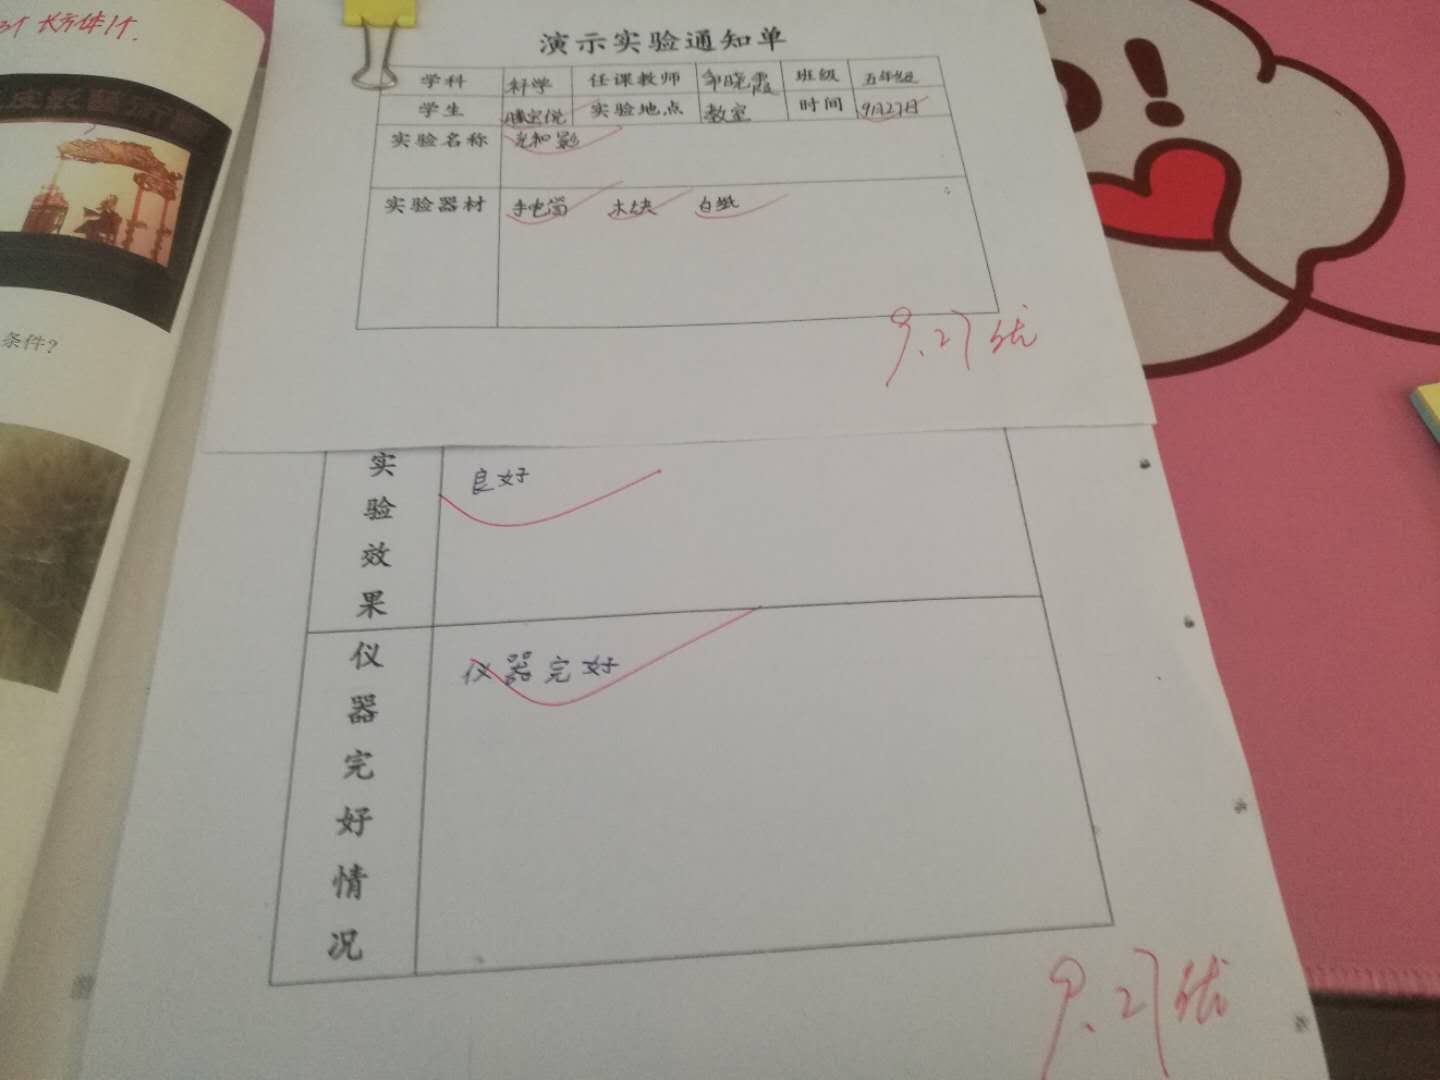 长方体1个.
皮影艺术馆
条件?
演示实验通知单
学科 科学 任课教师 邹晓霞 班级 五年级
学生 滕宝悦 实验地点 教室 时间 9月27日
实验名称 光和影
实验器材 手电筒 木块 白纸
9.27优
实验效果 良好
仪器完好情况 仪器完好
9.27优